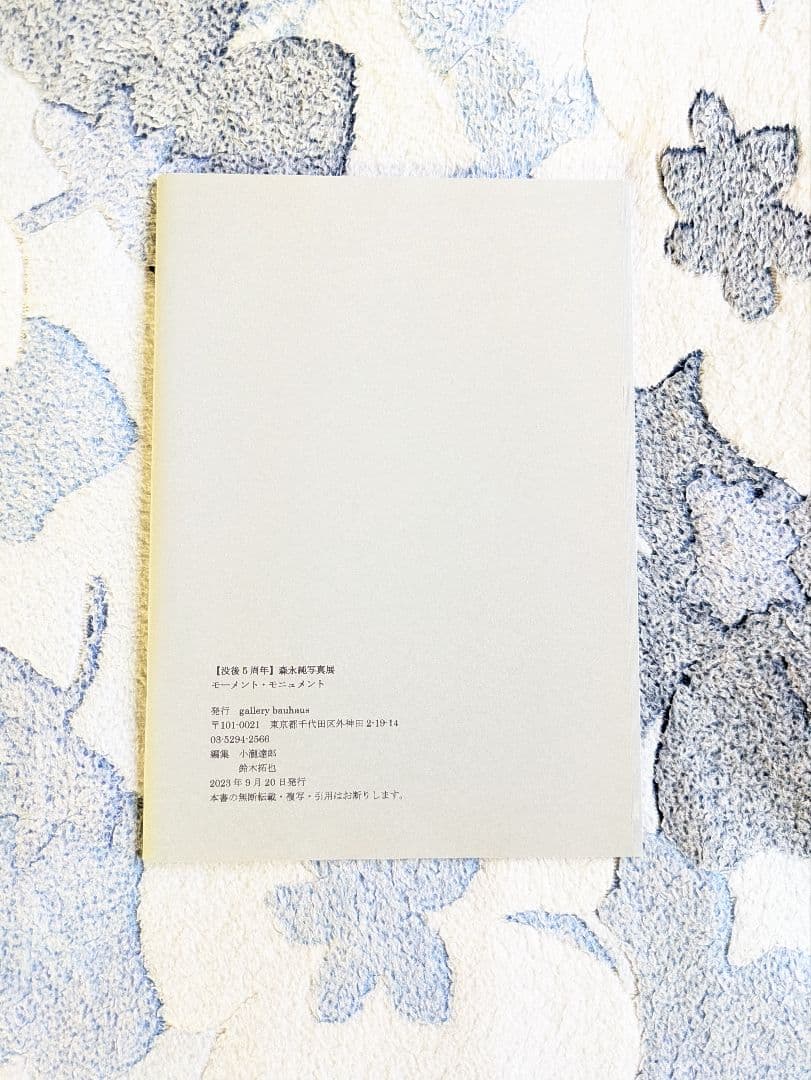 【没後5周年】森永純写真展
モーメント・モニュメント
発行　gallery bauhaus
〒101-0021　東京都千代田区外神田2-19-14
03-5294-2566
編集　小瀧達郎
鈴木拓也
2023年9月20日発行
本書の無断転載・複写・引用はお断りします。